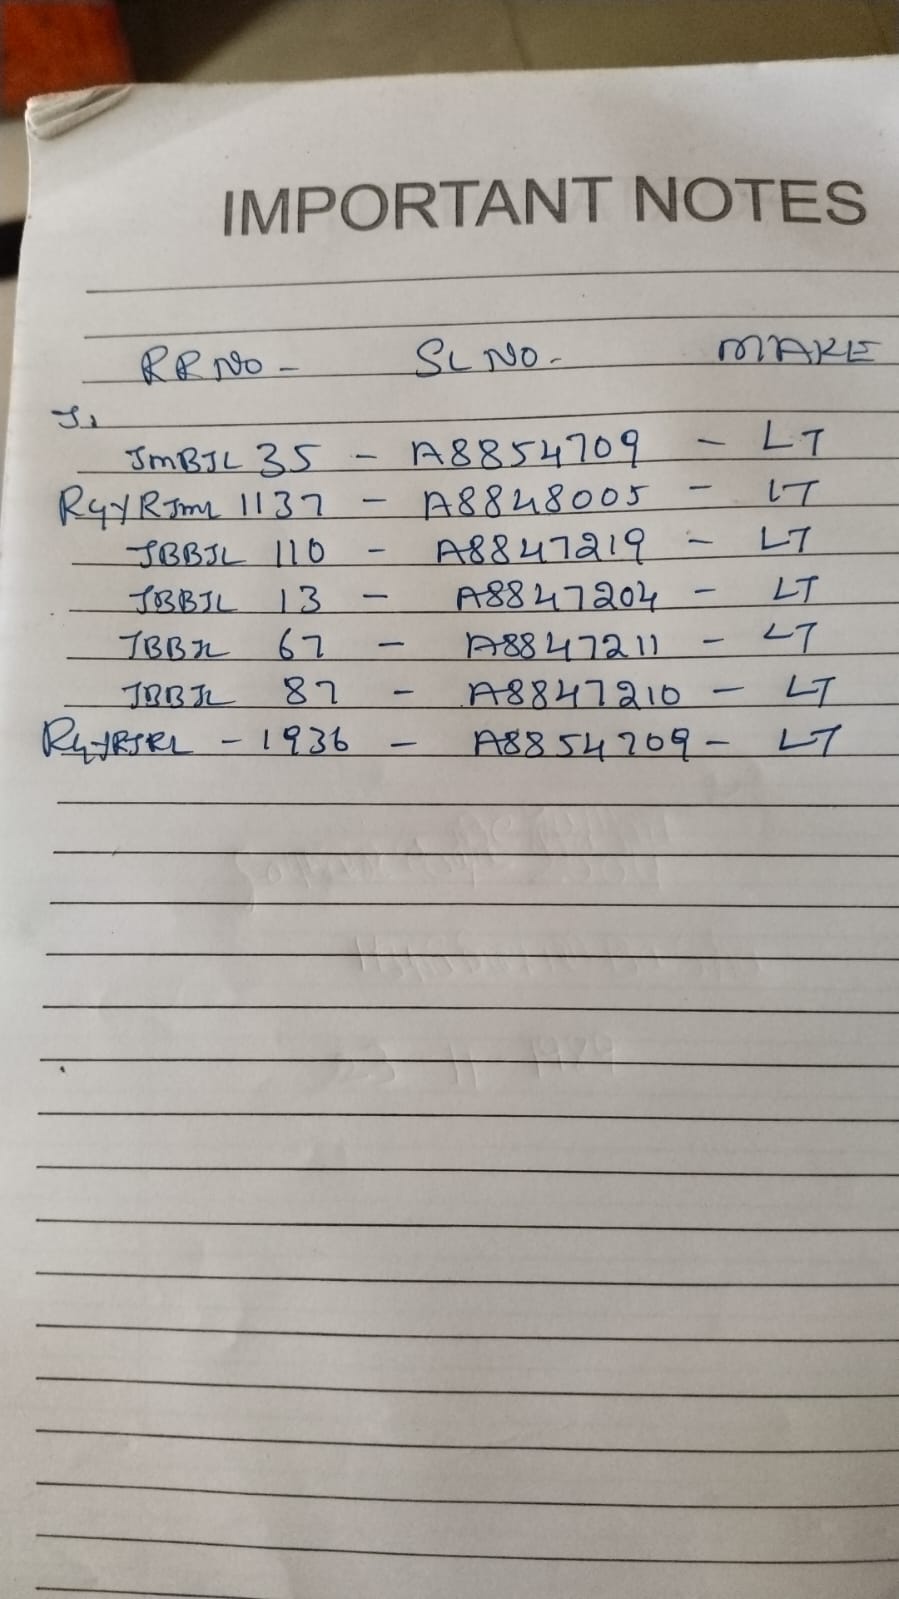 IMPORTANT NOTES
RR NO - SL NO - MAKE
JMBJL 35 - A8854709 - LT
1137 - A8848005 - LT
JBBJL 110 - A8847219 - LT
JBBJL 13 - A8847204 - LT
JBBJL 67 - A8847211 - LT
JBBJL 87 - A8847210 - LT
- 1936 - A8854709 - LT